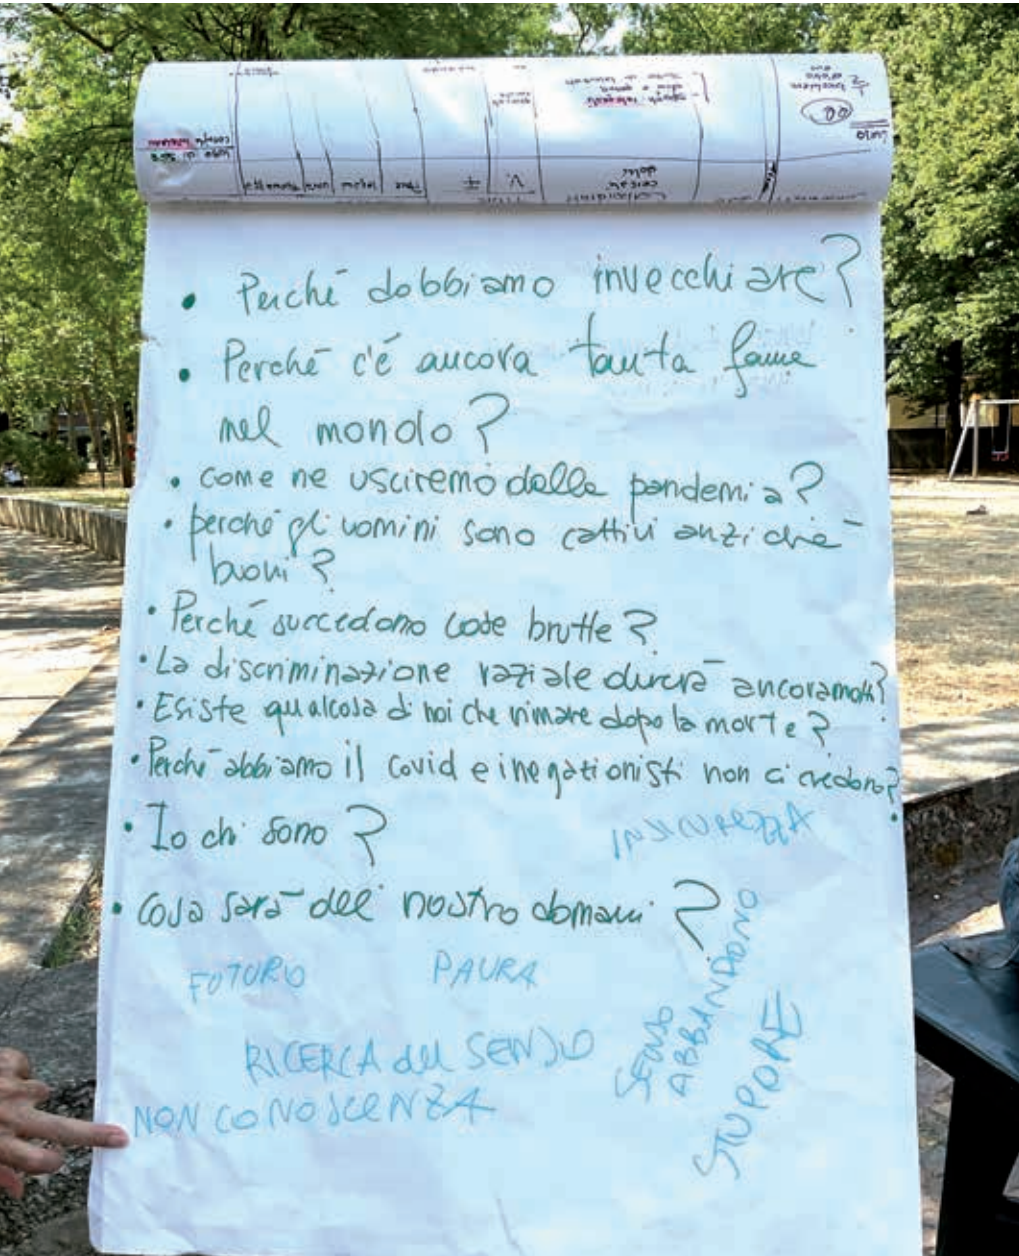 • Perché dobbiamo invecchiare?
• Perché c'é ancora tanta fame
nel mondo?
• come ne usciremo dalla pandemia?
• perché gli uomini sono cattivi anziché
buoni?
• Perché succedono cose brutte?
• La discriminazione raziale durerà ancora molto?
• Esiste qualcosa di noi che rimane dopo la morte?
• Perché abbiamo il covid e i negationisti non ci credono?
• Io chi sono?
INSICUREZZA
• Cosa sarà del nostro domani?
FUTURO
PAURA
SENSO
ABBANDONO
STUPORE
RICERCA del SENSO
NON CONOSCENZA